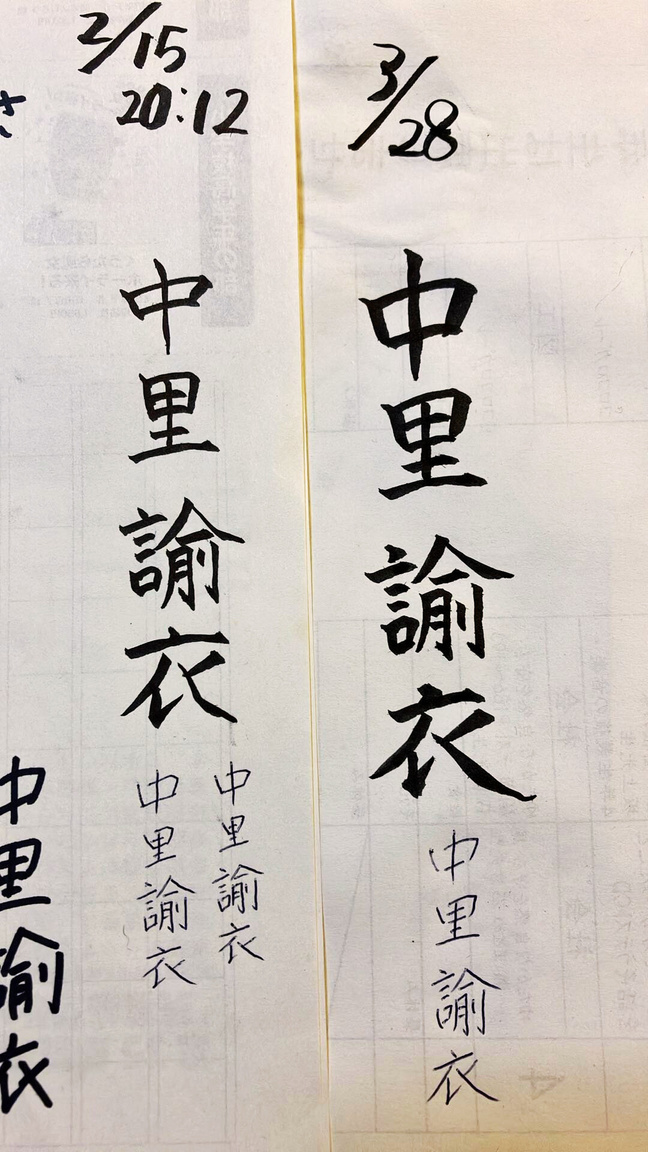 2/15
20:12
中里諭衣
中里諭衣
中里諭衣
中里諭衣
3/28
中里諭衣
中里諭衣